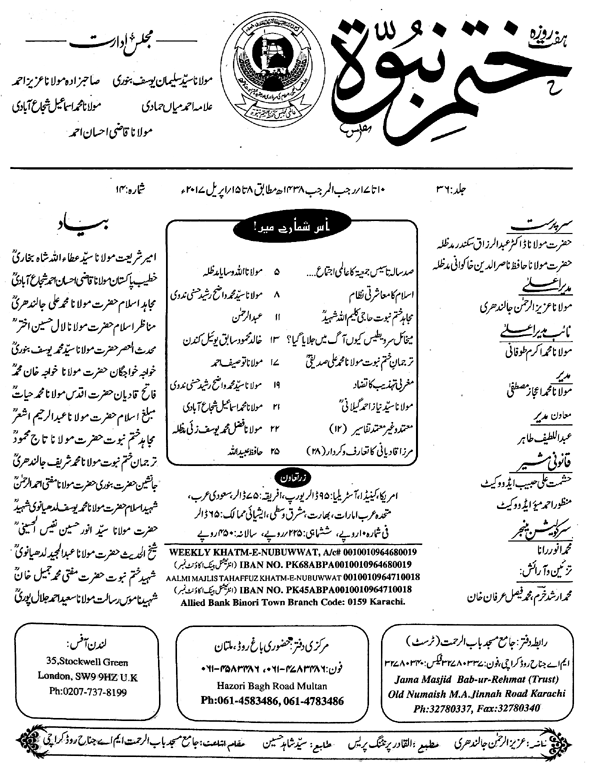 ہفت روزہ
ختم نبوۃ
مجلس ادارت
مولانا سید سلیمان یوسف بنوری صاحبزادہ مولانا عزیز احمد
علامہ احمد میاں حمادی مولانا محمد اسماعیل شجاع آبادی
مولانا قاضی احسان احمد
جلد: ۳۶ ۱۰ تا ۱۷/رجب المرجب ۱۴۳۸ھ مطابق ۸ تا ۱۵/اپریل ۲۰۱۷ء شمارہ: ۱۴
سرپرست
حضرت مولانا ڈاکٹر عبدالرزاق سکندر مدظلہ
حضرت مولانا حافظ ناصر الدین خاکوانی مدظلہ
مدیر اعلیٰ
مولانا عزیز الرحمٰن جالندھری
نائب مدیر اعلیٰ
مولانا محمد اکرم طوفانی
مدیر
مولانا محمد اعجاز مصطفیٰ
معاون مدیر
عبداللطیف طاہر
قانونی مشیر
حشمت علی حبیب ایڈووکیٹ
منظور احمد میو ایڈووکیٹ
سرکولیشن منیجر
محمد انور رانا
تزئین و آرائش:
محمد ارشد خرم، محمد فیصل عرفان خان
اس شمارے میں!
صد سالہ تاسیس جمعیۃ کا عالمی اجتماع.... ۵ مولانا اللہ وسایا مدظلہ
اسلام کا معاشرتی نظام ۸ مولانا سید محمد واضح رشید حسنی ندوی
مجاہد ختم نبوت حاجی کلیم اللہ شہیدؒ ۱۱ عبدالرحمٰن
میخائل سرویطس کیوں آگ میں جلایا گیا؟ ۱۳ خالد محمود سابق یوئیل کندن
ترجمان ختم نبوت مولانا محمد علی صدیقیؒ ۱۷ مولانا توصیف احمد
مغربی تہذیب کا تضاد ۱۹ مولانا سید محمد واضح رشید حسنی ندوی
مولانا سید نیاز احمد گیلانیؒ ۲۱ مولانا محمد اسماعیل شجاع آبادی
معتمد و غیر معتمد تفاسیر (۱۲) ۲۲ مولانا فضل محمد یوسف زئی مدظلہ
مرزا قادیانی کا تعارف و کردار (۲۸) ۲۵ حافظ عبید اللہ
زرتعاون
امریکا، کینیڈا، آسٹریلیا: ۹۵ ڈالر یورپ، افریقہ: ۷۵ ڈالر، سعودی عرب،
متحدہ عرب امارات، بھارت، مشرق وسطیٰ، ایشیائی ممالک: ۶۵ ڈالر
فی شمارہ ۱۰ روپے، ششماہی: ۲۲۵ روپے، سالانہ: ۴۵۰ روپے
WEEKLY KHATM-E-NUBUWWAT, A/c# 0010010964680019
IBAN NO. PK68ABPA0010010964680019 (انٹرنیشنل بینک اکاؤنٹ نمبر)
AALMI MAJLIS TAHAFFUZ KHATM-E-NUBUWWAT 0010010964710018
IBAN NO. PK45ABPA0010010964710018 (انٹرنیشنل بینک اکاؤنٹ نمبر)
Allied Bank Binori Town Branch Code: 0159 Karachi.
بیاد
امیر شریعت مولانا سید عطاء اللہ شاہ بخاریؒ
خطیب پاکستان مولانا قاضی احسان احمد شجاع آبادیؒ
مجاہد اسلام حضرت مولانا محمد علی جالندھریؒ
مناظر اسلام حضرت مولانا لال حسین اخترؒ
محدث العصر حضرت مولانا سید محمد یوسف بنوریؒ
خواجہ خواجگان حضرت مولانا خواجہ خان محمدؒ
فاتح قادیان حضرت اقدس مولانا محمد حیاتؒ
مبلغ اسلام حضرت مولانا عبدالرحیم اشعرؒ
مجاہد ختم نبوت حضرت مولانا تاج محمودؒ
ترجمان ختم نبوت حضرت مولانا محمد شریف جالندھریؒ
جانشین حضرت بنوری حضرت مولانا مفتی احمد الرحمٰنؒ
شہید اسلام حضرت مولانا محمد یوسف لدھیانوی شہیدؒ
حضرت مولانا سید انور حسین نفیس الحسینیؒ
شیخ الحدیث حضرت مولانا عبدالمجید لدھیانویؒ
شہید ختم نبوت حضرت مفتی محمد جمیل خانؒ
شہید ناموس رسالت مولانا سعید احمد جلال پوریؒ
رابطہ دفتر: جامع مسجد باب الرحمت (ٹرسٹ)
ایم اے جناح روڈ کراچی، فون: ۳۲۷۸۰۳۳۷ فیکس: ۳۲۷۸۰۳۴۰
Jama Masjid Bab-ur-Rehmat (Trust)
Old Numaish M.A.Jinnah Road Karachi
Ph:32780337, Fax:32780340
مرکزی دفتر: حضوری باغ روڈ، ملتان
فون: ۰۶۱-۴۷۸۳۴۸۶، ۰۶۱-۴۵۸۳۴۸۶
Hazori Bagh Road Multan
Ph:061-4583486, 061-4783486
لندن آفس:
35,Stockwell Green
London, SW9 9HZ U.K
Ph:0207-737-8199
ناشر: عزیز الرحمٰن جالندھری مطبع: القادر پرنٹنگ پریس طابع: سید شاہد حسین مقام اشاعت: جامع مسجد باب الرحمت ایم اے جناح روڈ کراچی